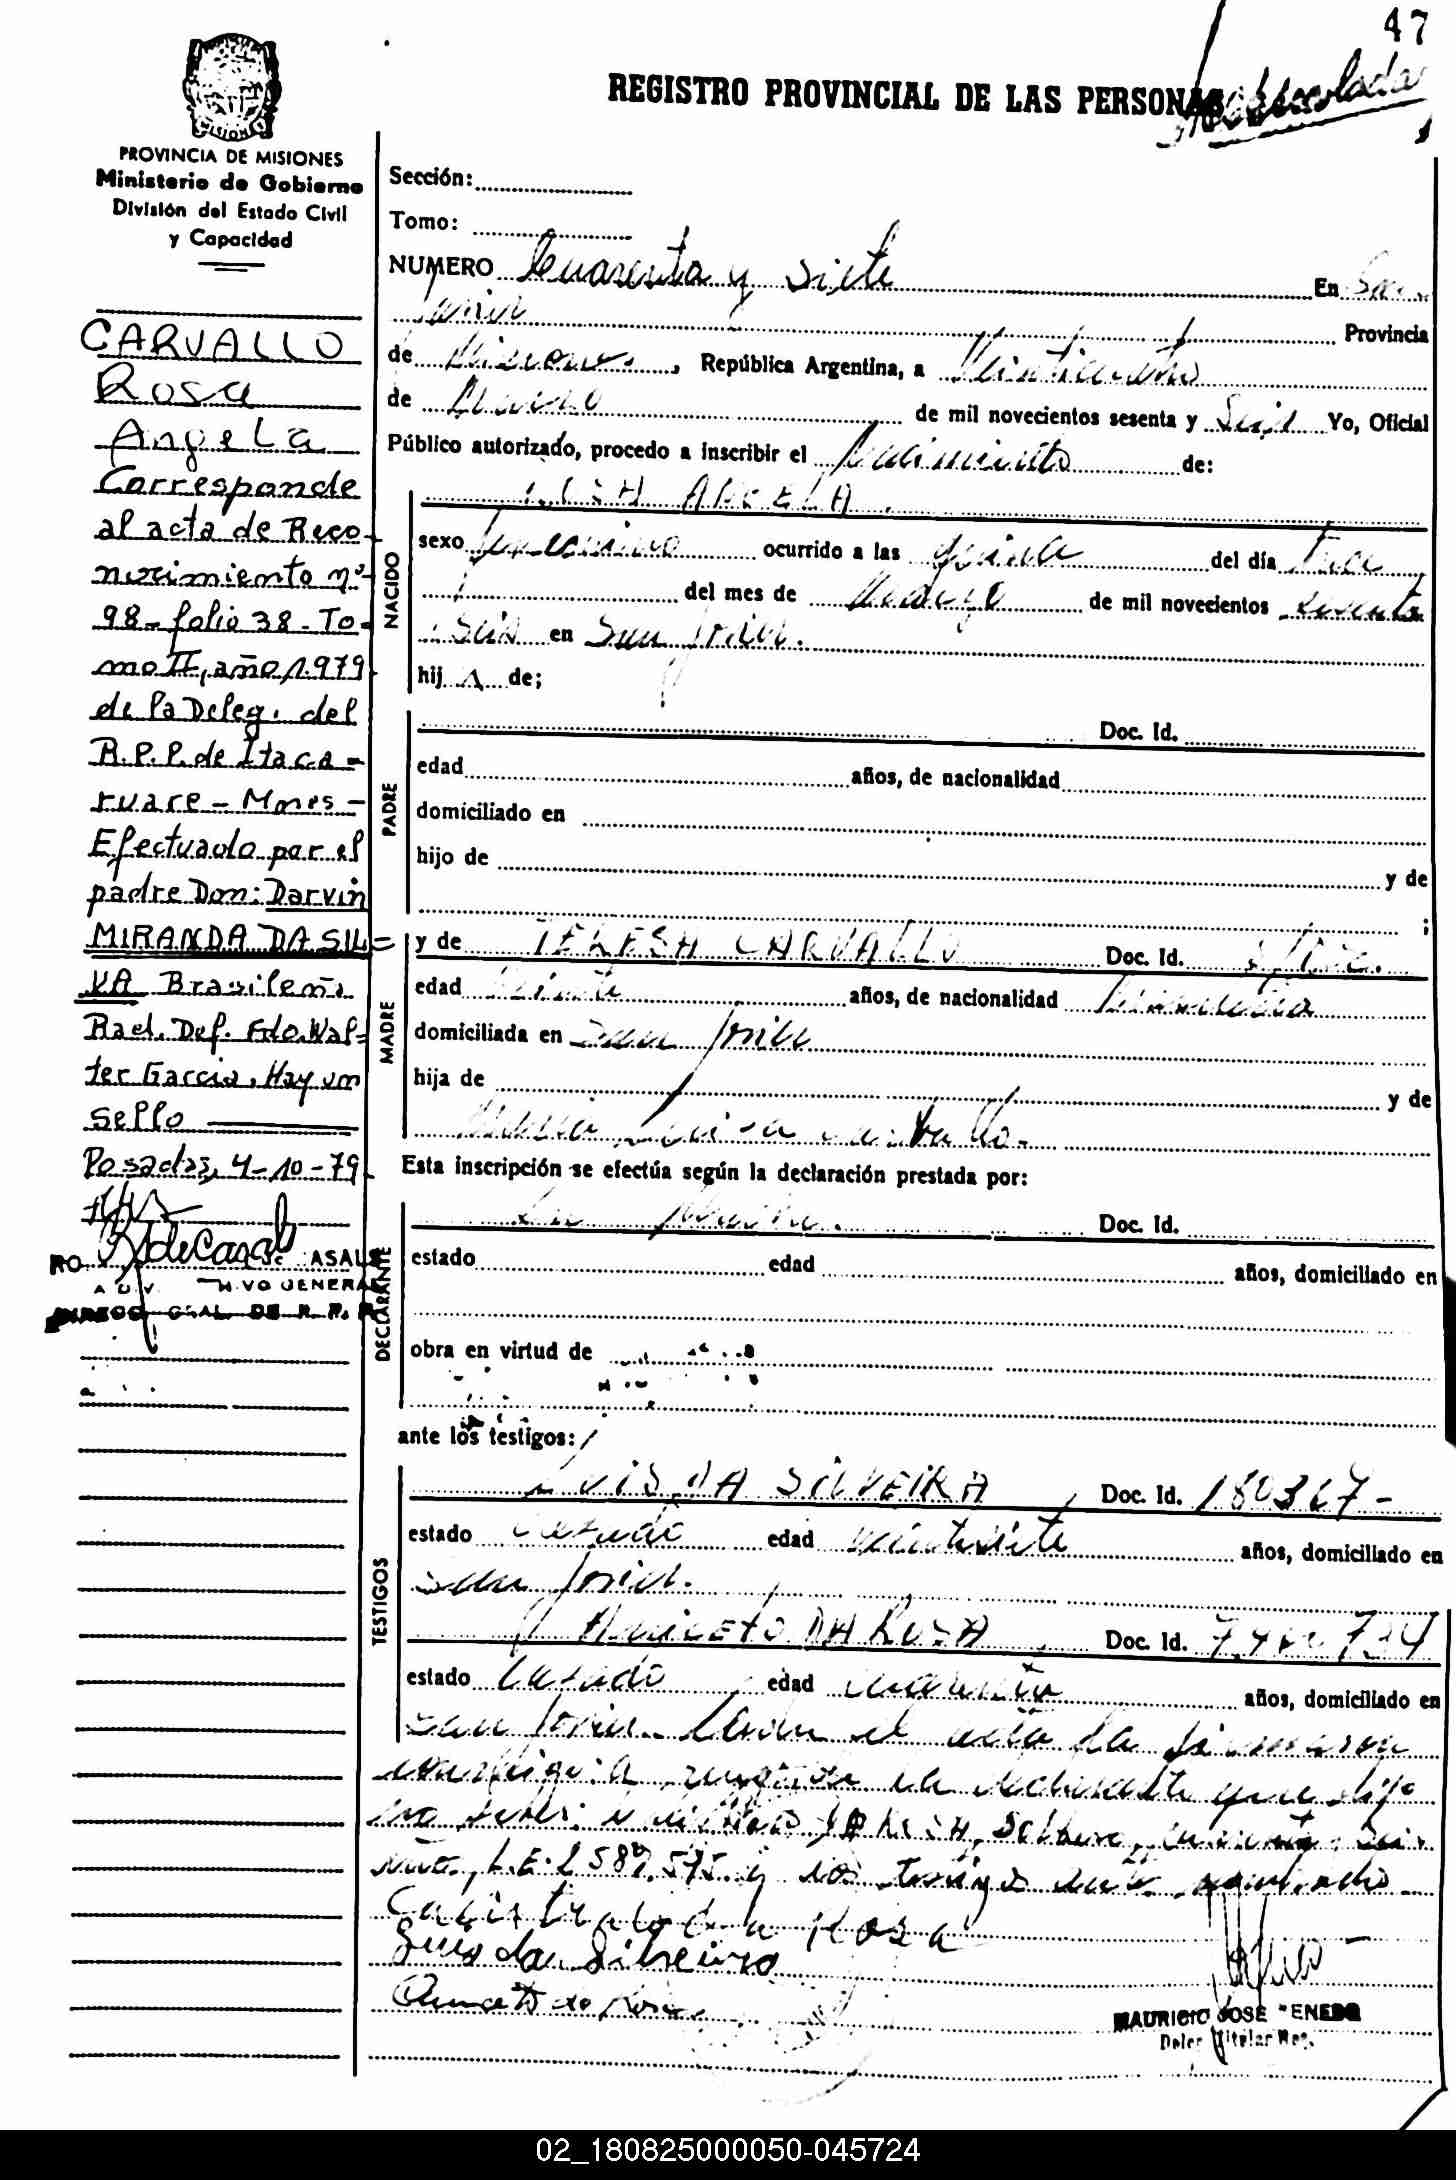 47
REGISTRO PROVINCIAL DE LAS PERSONAS
MISIONES
PROVINCIA DE MISIONES
Ministerio de Gobierno
División del Estado Civil
y Capacidad
Sección:
Tomo:
NUMERO Cuarenta y Siete En San
Javier Provincia
de Misiones, República Argentina, a Veinticuatro
de Marzo de mil novecientos sesenta y Seis Yo, Oficial
Público autorizado, procedo a inscribir el Nacimiento de:
CARVALLO
Rosa
Angela
Corresponde
al acta de Reco-
nocimiento nº
98-folio 38-To-
mo II, año 1.979
de la Deleg. del
R.P.P. de Itaca-
ruare - Mnes -
Efectuado por el
padre Don: Darvin
MIRANDA DA SIL=
VA Brasileña
Rael. Def. Fdo. Wal=
ter Garcia. Hay un
sello
Posadas, 4-10-79
NACIDO
ANGELA
sexo femenino ocurrido a las quince del día trece
del mes de Marzo de mil novecientos sesenta
Seis en San Javier.
hij A de;
PADRE
Doc. Id.
edad años, de nacionalidad
domiciliado en
hijo de y de
;
MADRE
y de TERESA CARVALLO Doc. Id.
edad Veinte años, de nacionalidad
domiciliada en San Javier
hija de y de
Maria Luisa Carvallo.
Esta inscripción se efectúa según la declaración prestada por:
DECLARANTE
La Madre. Doc. Id.
estado edad años, domiciliado en
obra en virtud de
ante los testigos:
TESTIGOS
LUIS DA SILVEIRA Doc. Id. 180367-
estado Casado edad veintisiete años, domiciliado en
San Javier.
ANICETO DA ROSA Doc. Id.
estado Casado edad cuarenta años, domiciliado en
San Javier. Leída el acta la firmaron
conmigo a ruego de la declarante que dijo
no saber
y los testigos
da Rosa
Luis da Silveira
Aniceto da Rosa
MAURICIO JOSE
02_180825000050-045724